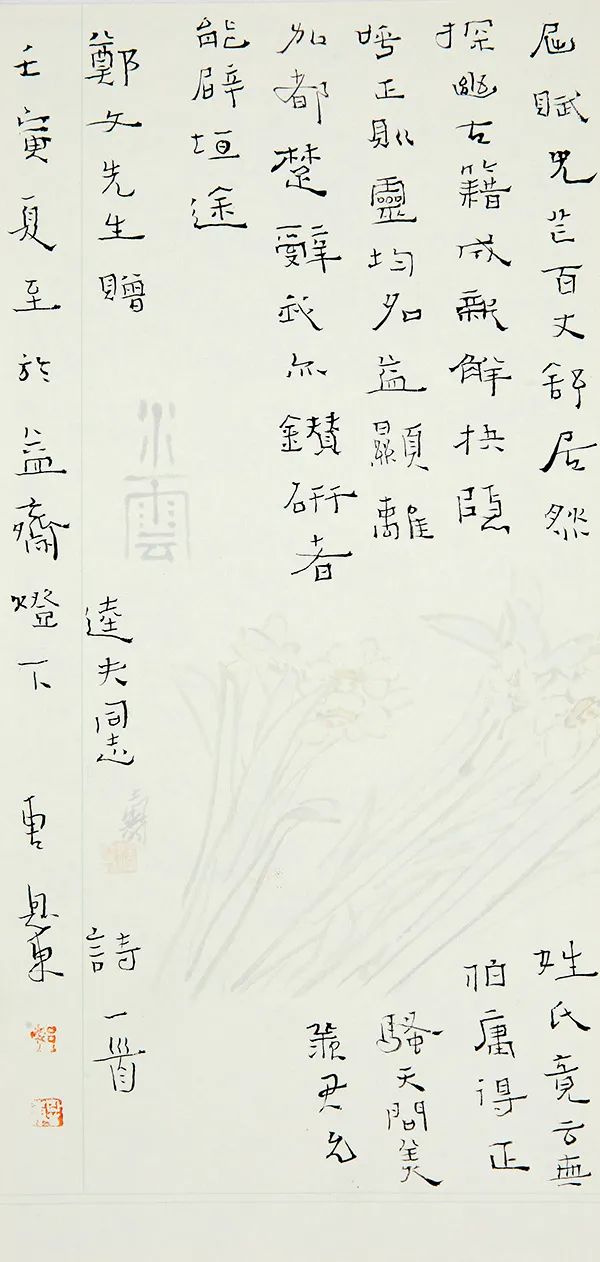 屈賦光芒百丈舒居然姓氏竟云無
探幽古籍成新解抉隱伯庸得正
呼正則靈均名益顯離騷天問美
加都楚辭我亦鑽研者羨君先
能辟坦途
鄭文先生贈逵夫同志詩一首
壬寅夏至於益齋燈下
水雲